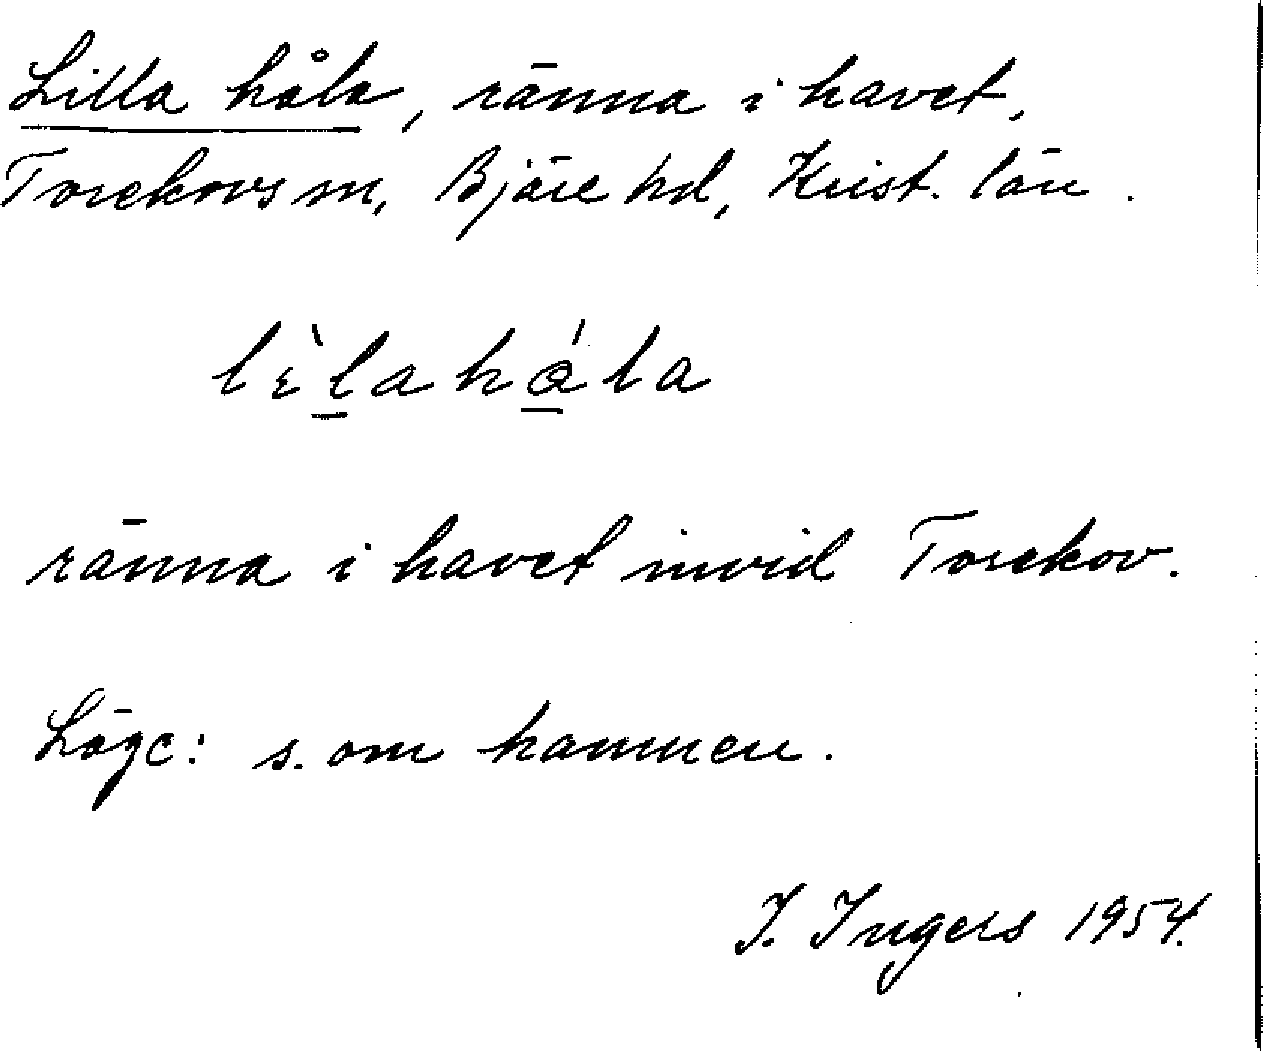 Lilla håla, ränna i havet,
Torekovs sn, Bjäre hd, Krist. län.
lìlahǻla
ränna i havet invid Torekov.
Läge: s. om hamnen.
I. Ingers 1954.